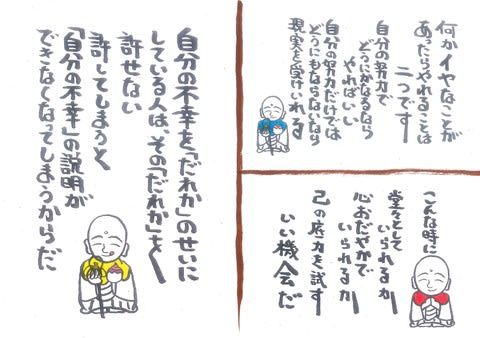 何かイヤなことが
あったらやれることは
二つです
自分の努力で
どうにかなるなら
やればいい
自分の努力だけでは
どうにもならないなら
現実を受けいれる
こんな時に
堂々として
いられるか
心おだやかで
いられるか
己の底力を試す
いい機会だ
自分の不幸を「だれか」のせいに
している人は、その「だれか」を
許せない
許してしまうと
「自分の不幸」の説明が
できなくなってしまうからだ